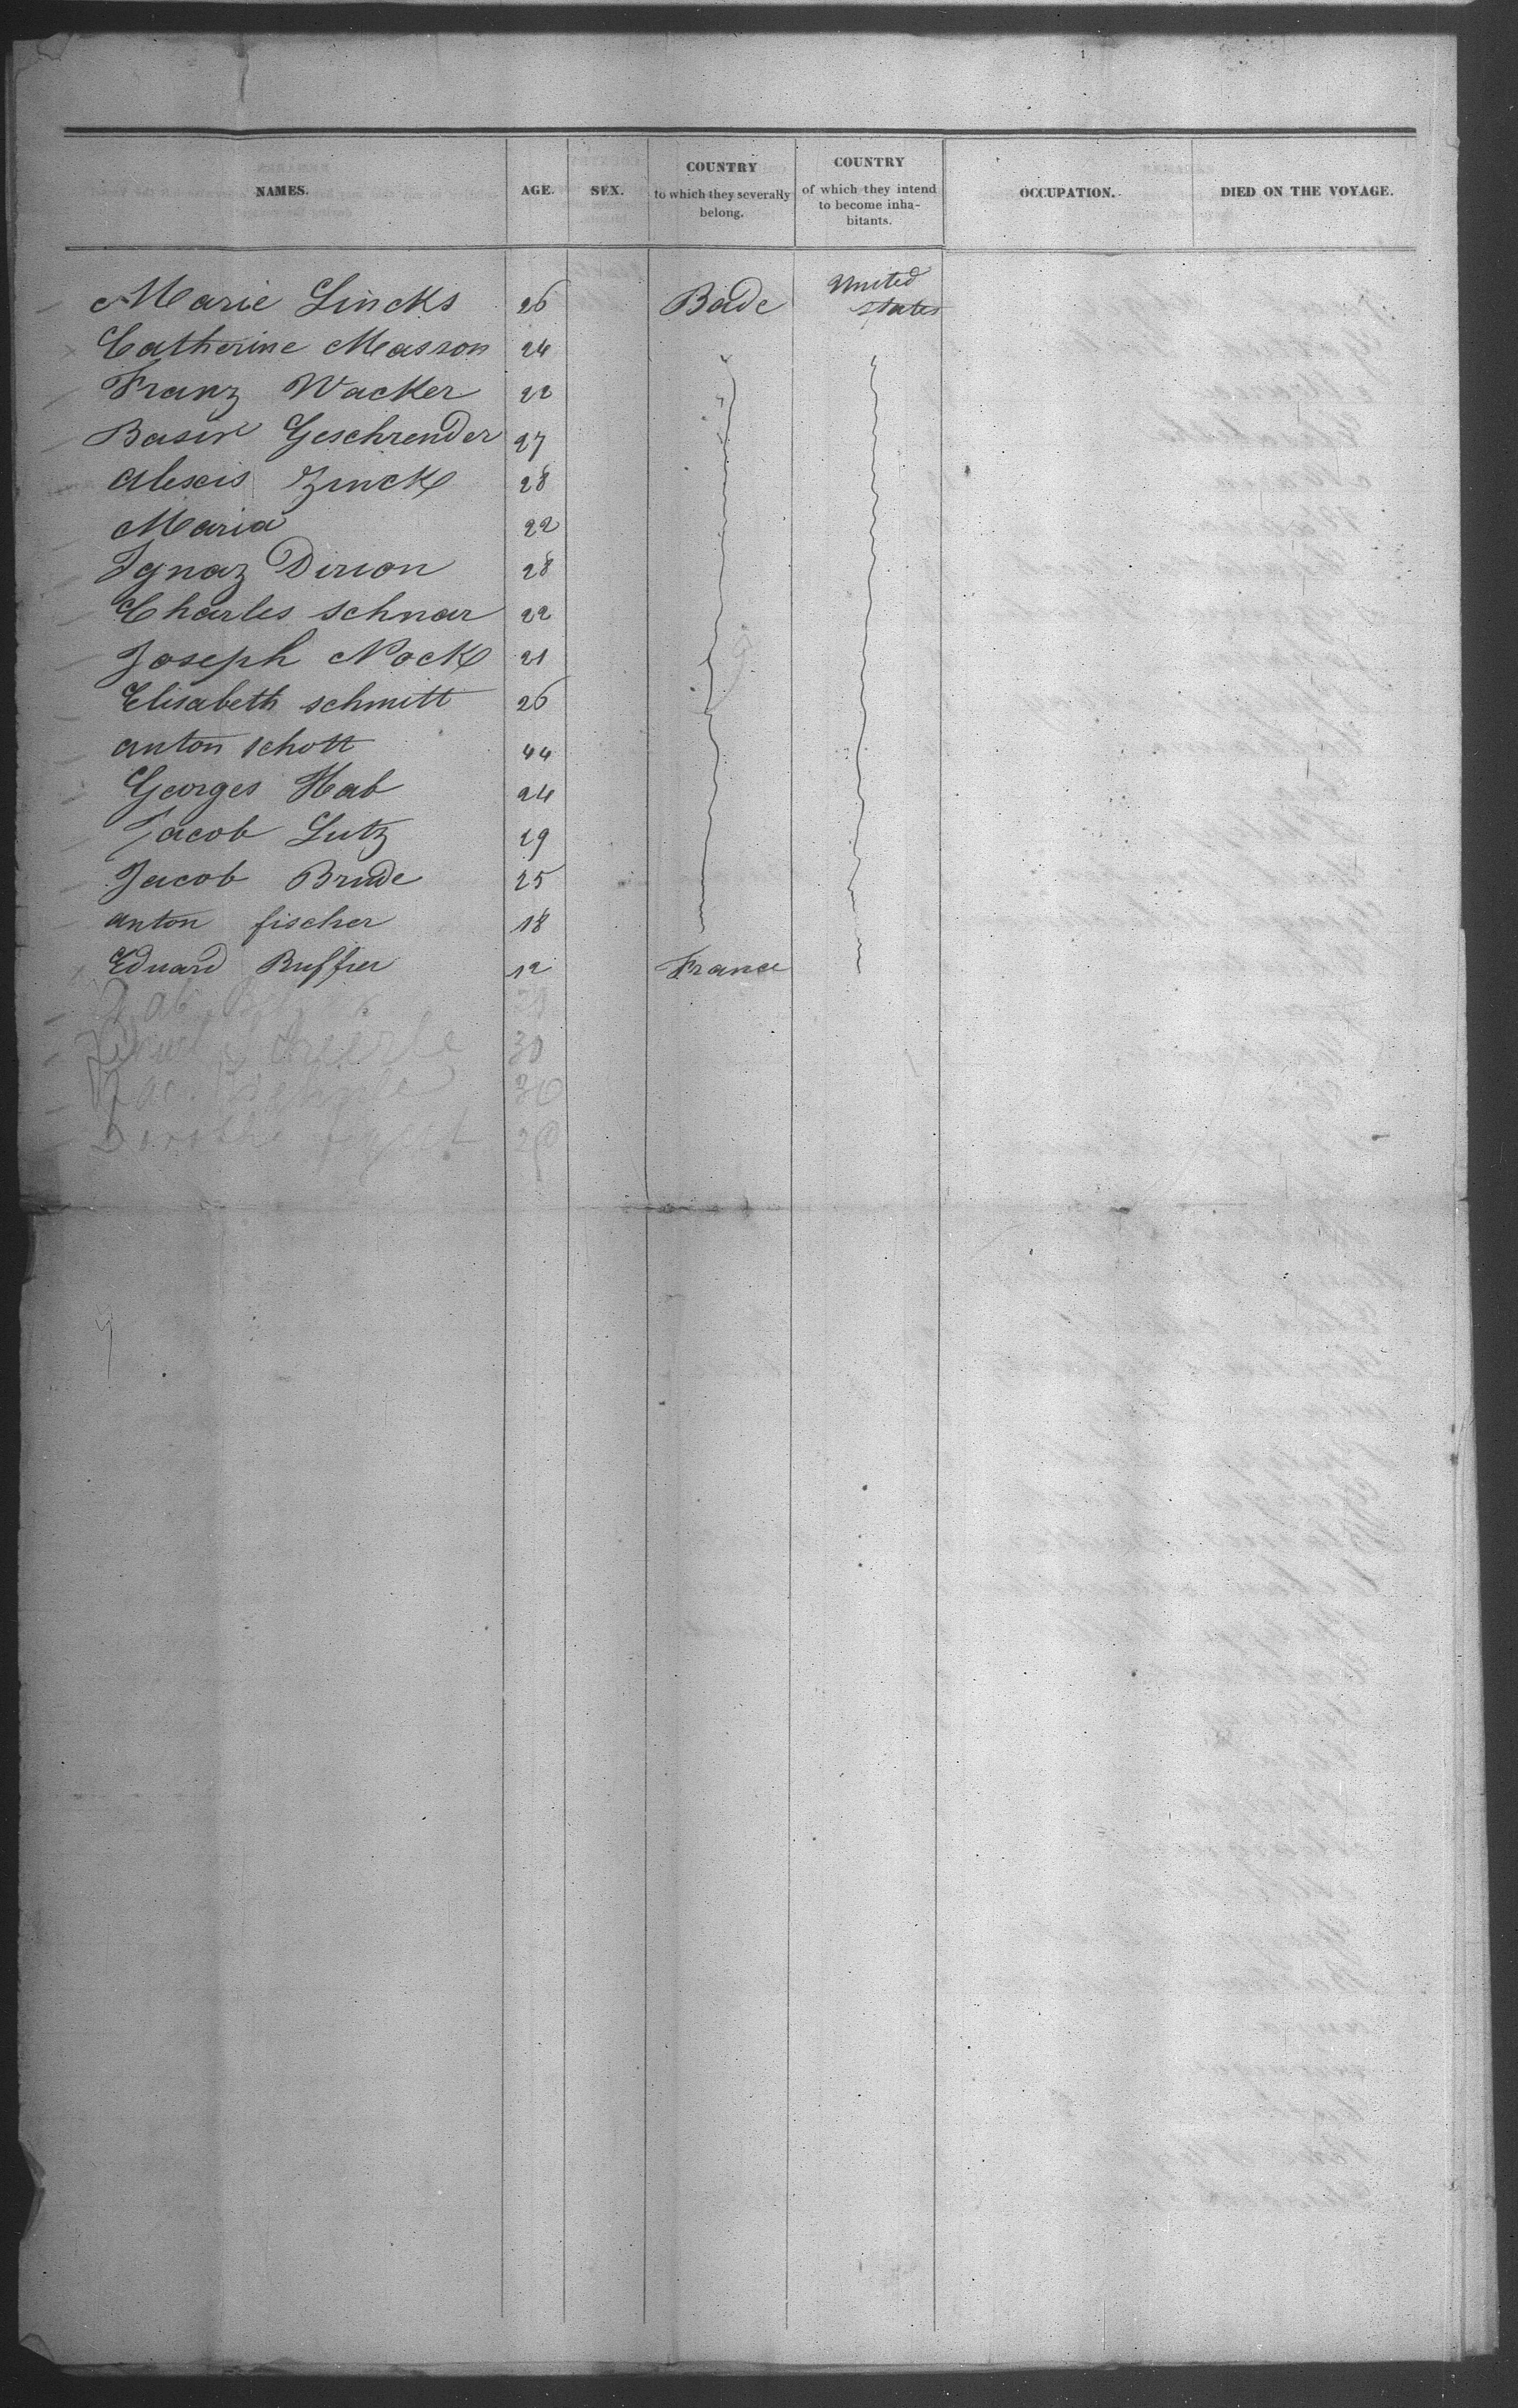 NAMES. AGE. SEX. COUNTRY to which they severally belong. COUNTRY of which they intend to become inha-bitants. OCCUPATION. DIED ON THE VOYAGE.
Marie Lincks 26 Bade United states
Catherine Masson 24
Franz Wacker 22
Geschrender 27
Alexis Zinck 28
Maria 22
Ignaz Dirion 28
Charles schnar 22
Joseph Nock 21
Elisabeth schmitt 26
anton schott 44
Georges Hab 24
Jacob Lutz 29
Jacob Brude 25
anton fischer 18
Eduard Buffier 12 France
21
30
30
Dorothe